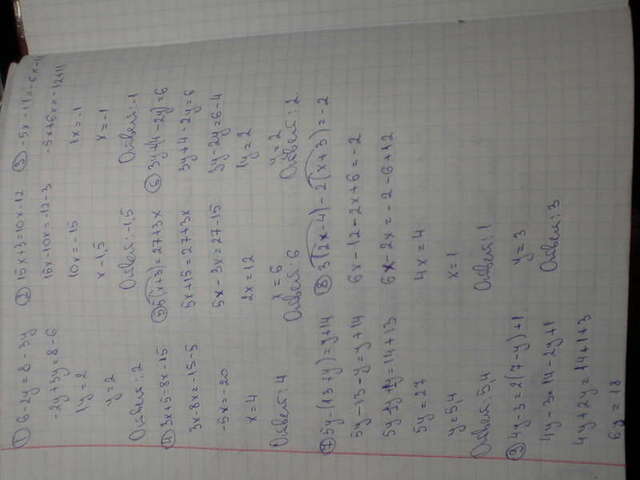 ① 6-2y=8-3y
-2y+3y=8-6
1y=2
y=2
Ответ: 2
② 15x+3=10x-12
15x-10x=-12-3
10x=-15
x-1,5
Ответ: -1,5
③ -5x+11=-6x-
-5x+6x=-12+11
1x=-1
x=-1
Ответ: -1
④ 3x+5=8x-15
3x-8x=-15-5
-5x=-20
x=4
Ответ: 4
⑤ 5(x+3)=27+3x
5x+15=27+3x
5x-3x=27-15
2x=12
x=6
Ответ: 6
⑥ 3y+(4-2y)=6
3y+4-2y=6
3y-2y=6-4
1y=2
y=2
Ответ: 2
⑦ 5y-(13+y)=y+14
5y-13-y=y+14
5y-y+y=14+13
5y=27
y=5,4
Ответ: 5,4
⑧ 3(2x-4)-2(x+3)=-2
6x-12-2x+6=-2
6x-2x=-2-6+12
4x=4
x=1
Ответ: 1
⑨ 4y-3=2(7-y)+1
4y-3=14-2y+1
4y+2y=14+1+3
6y=18
y=3
Ответ: 3